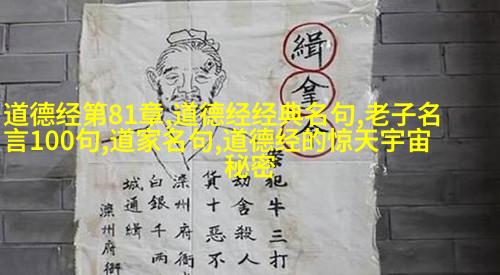 道德经第81章,道德经经典名句,老子名
言100句,道家名句,道德经的惊天宇宙
秘密
緝拿
犯牛三打
劫舍殺人
貨十惡不
滦州府衙
白銀千两
城通緝
滦州府衙